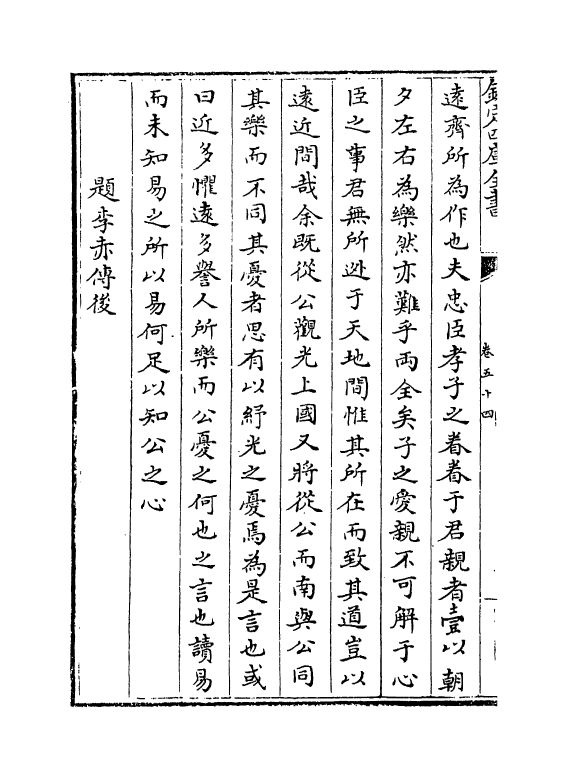 欽定四庫全書
卷五十四
遠齊所為作也夫忠臣孝子之眷眷于君親者壹以朝
夕左右為樂然亦難乎兩全矣子之愛親不可解于心
臣之事君無所逃于天地間惟其所在而致其道豈以
遠近間哉余既從公觀光上國又將從公而南與公同
其樂而不同其憂者思有以紓光之憂焉為是言也或
曰近多懼遠多譽人所樂而公憂之何也之言也讀易
而未知易之所以易何足以知公之心
題李赤傳後